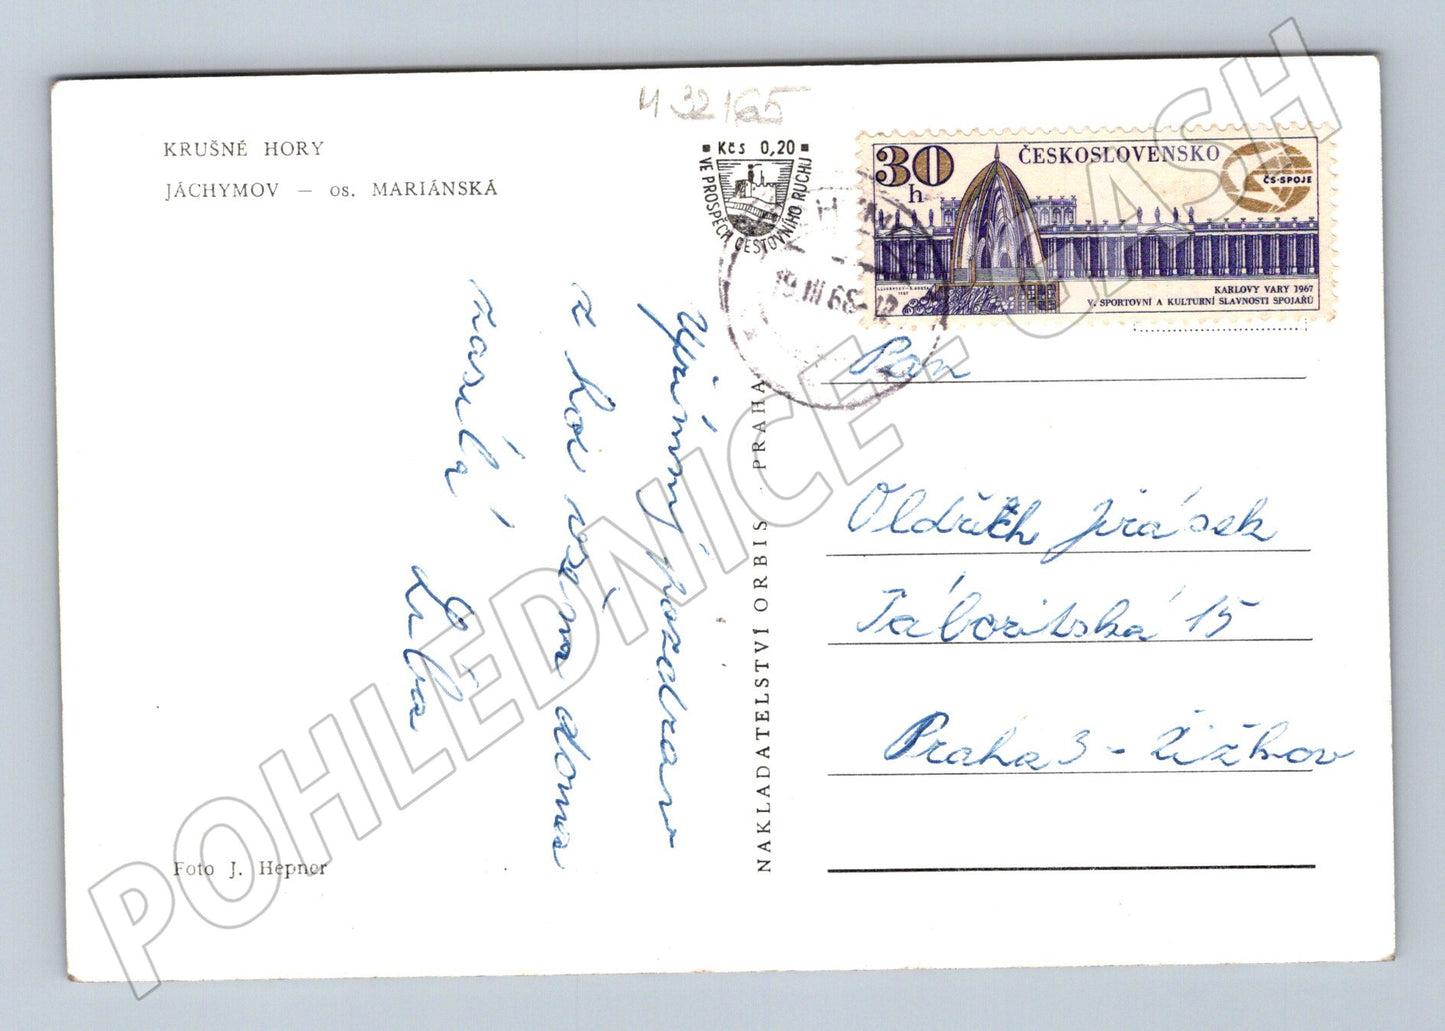 432/65
KRUŠNÉ HORY
JÁCHYMOV — os. MARIÁNSKÁ
Kčs 0,20
VE PROSPĚCH CESTOVNÍHO RUCHU
30 h
ČESKOSLOVENSKO
ČS·SPOJE
KARLOVY VARY 1967
V. SPORTOVNÍ A KULTURNÍ SLAVNOSTI SPOJAŘŮ
19.III.68-12
Upřímný pozdrav
z hor všem doma
zasílá
Liba
Pan
Oldřich Jirásek
Táboritská 15
Praha 3 - Žižkov
NAKLADATELSTVÍ ORBIS PRAHA
Foto J. Hepner
POHLEDNICE - CASH